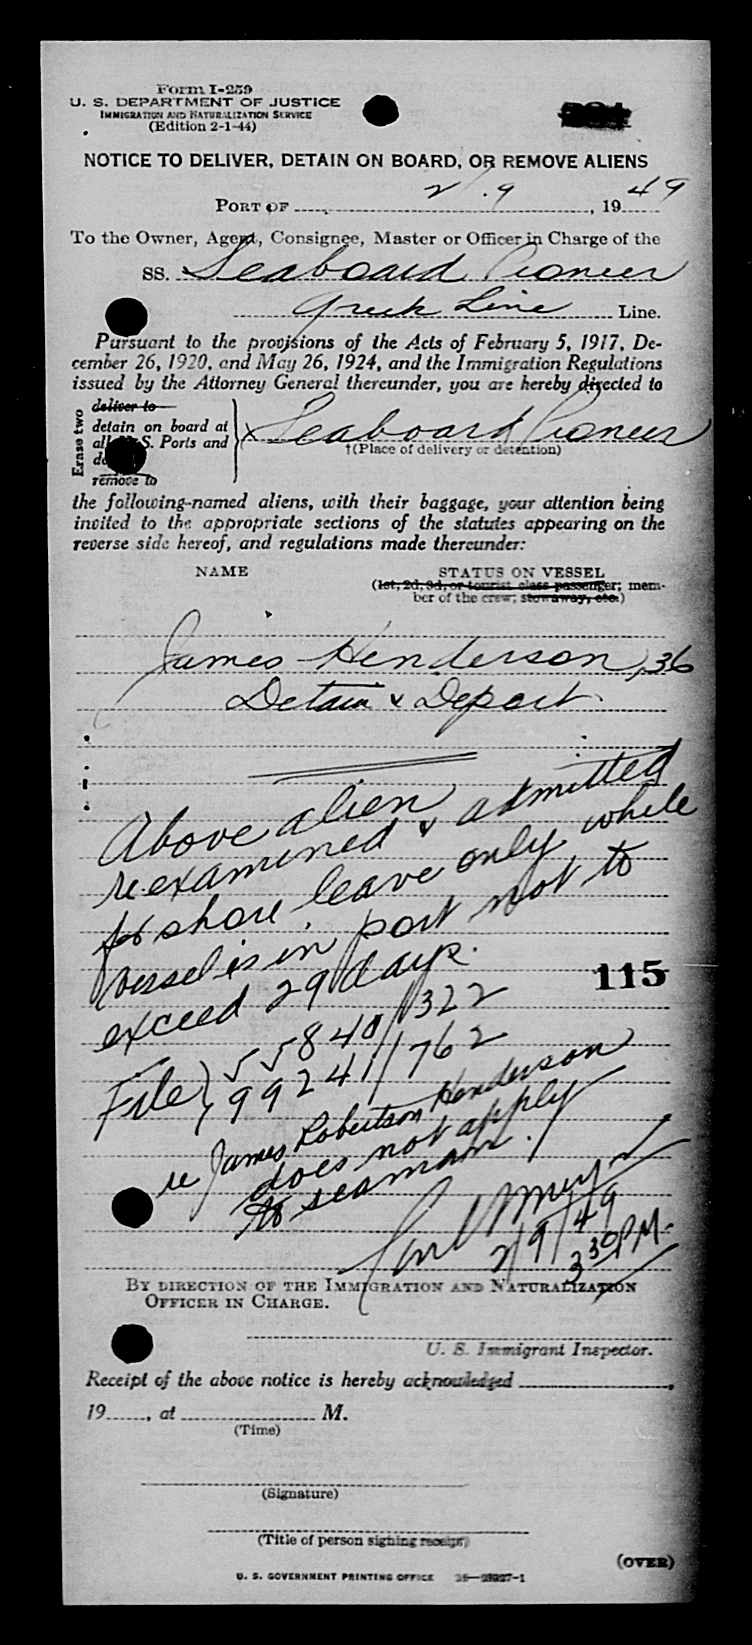 Form I-259
U. S. DEPARTMENT OF JUSTICE
IMMIGRATION AND NATURALIZATION SERVICE
(Edition 2-1-44)
NOTICE TO DELIVER, DETAIN ON BOARD, OR REMOVE ALIENS
PORT OF 2/9, 1949
To the Owner, Agent, Consignee, Master or Officer in Charge of the
SS. Seaboard Pioneer
Greek Line Line.
Pursuant to the provisions of the Acts of February 5, 1917, De-
cember 26, 1920, and May 26, 1924, and the Immigration Regulations
issued by the Attorney General thereunder, you are hereby directed to
Erase two
deliver to
detain on board at
all U. S. Ports and
remove to
x Seaboard Pioneer
†(Place of delivery or detention)
the following-named aliens, with their baggage, your attention being
invited to the appropriate sections of the statutes appearing on the
reverse side hereof, and regulations made thereunder:
NAME STATUS ON VESSEL
(1st, 2d, 3d, or tourist class passenger; mem-
ber of the crew; stowaway, etc.)
James Henderson, 36
Detain & Deport
Above alien
reexamined & admitted
for shore leave only while
vessel is in port not to
exceed 29 days.
115
File } 55840/322
99241/762
re James Robertson Henderson
does not apply
to seaman.
2/9/49
3 30 P.M.
BY DIRECTION OF THE IMMIGRATION AND NATURALIZATION
OFFICER IN CHARGE.
U. S. Immigrant Inspector.
Receipt of the above notice is hereby acknowledged
19, at M.
(Time)
(Signature)
(Title of person signing receipt)
(OVER)
U. S. GOVERNMENT PRINTING OFFICE